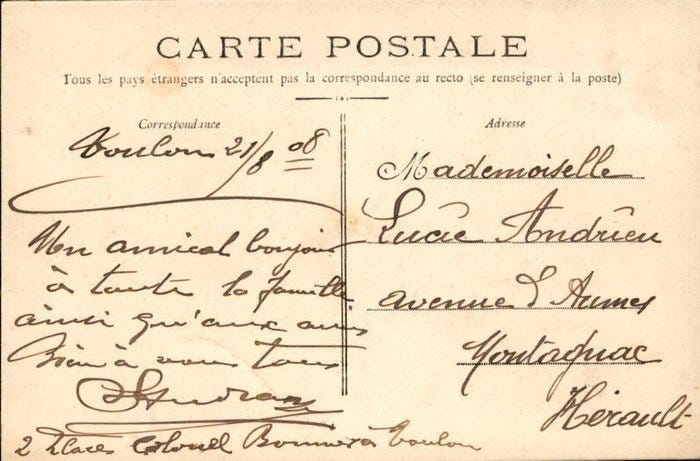 CARTE POSTALE
Tous les pays étrangers n'acceptent pas la correspondance au recto (se renseigner à la poste)
Correspondance
Toulon 21/8 08
Un amical bonjour
à toute la famille
ainsi qu'aux amis
Bien à vous tous
2 Place Colonel Bonnier à Toulon
Adresse
Mademoiselle
Lucie Andrieu
avenue d'Aumes
Montagnac
Hérault